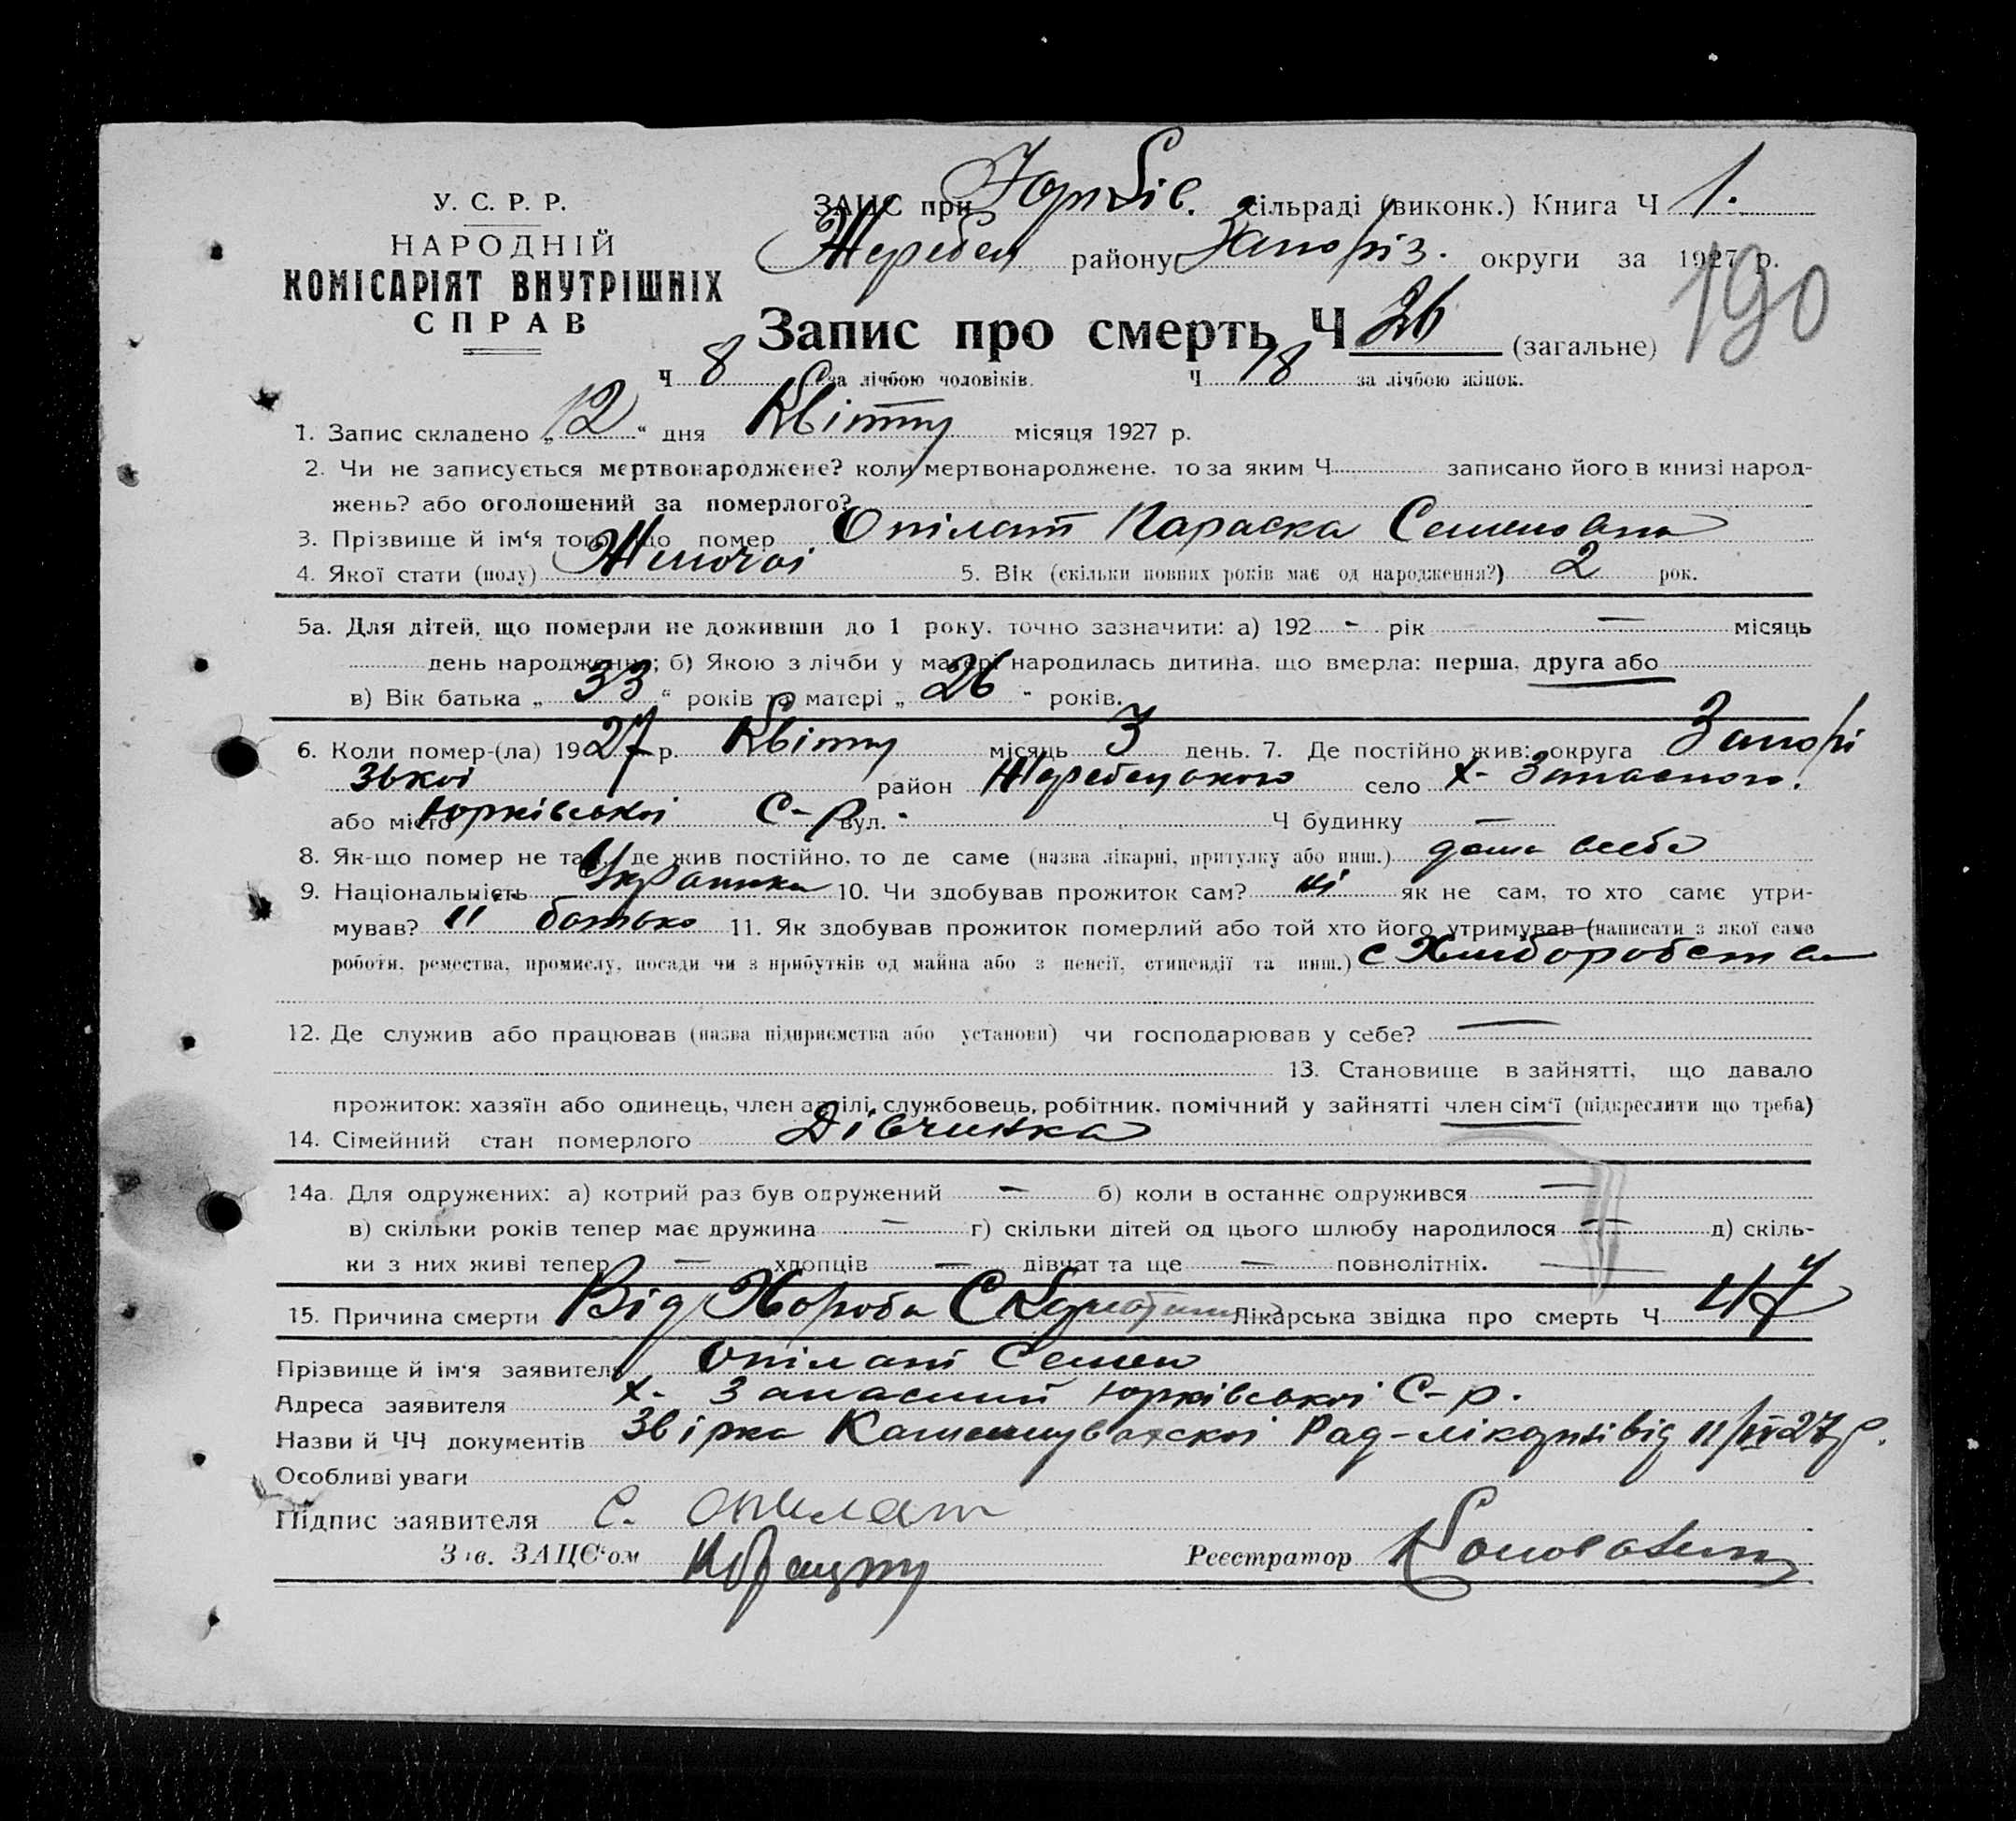 У. С. Р. Р.
НАРОДНІЙ
КОМІСАРІЯТ ВНУТРІШНІХ
СПРАВ
ЗАПС при Юрків. сільраді (виконк.) Книга Ч 1.
Жеребец району Запоріз. округи за 1927 р.
190
Запис про смерть Ч 26 (загальне)
Ч 8 за лічбою чоловіків. Ч 18 за лічбою жінок.
1. Запис складено „12“ дня Квітну місяця 1927 р.
2. Чи не записується мертвонароджене? коли мертвонароджене, то за яким Ч записано його в книзі народ-
жень? або оголошений за померлого?
3. Прізвище й ім‘я того, що помер Опілат Параска Семеновна
4. Якої стати (полу) Жиночоі 5. Вік (скільки повних років має од народження?) 2 рок.
5а. Для дітей, що померли не доживши до 1 року, точно зазначити: а) 192 - рік — місяць
день народження; б) Якою з лічби у матері народилась дитина, що вмерла: перша, друга або
в) Вік батька „33“ років та матері „26“ років.
6. Коли помер-(ла) 1927 р. Квітну місяць 3 день. 7. Де постійно жив: округа Запорі
зькоі район Жеребецького село х- Запасного.
або місто Юрківськоі С-р вул. - Ч будинку —
8. Як-що помер не там, де жив постійно, то де саме (назва лікарні, притулку або инш.) дома
9. Національність Украинка 10. Чи здобував прожиток сам? ні як не сам, то хто саме утри-
мував? іі батько 11. Як здобував прожиток померлий або той хто його утримував (написати з якої саме
роботи, ремества, промислу, посади чи з прибутків од майна або з пенсії, стипендії та инш.) с Хлиборобства
12. Де служив або працював (назва підприємства або установи) чи господарював у себе? —
13. Становище в зайнятті, що давало
прожиток: хазяїн або одинець, член артілі, службовець, робітник, помічний у зайнятті член сім‘ї (підкреслити що треба)
14. Сімейний стан померлого Дівчинка
14а. Для одружених: а) котрий раз був одружений — б) коли в останнє одружився —
в) скільки років тепер має дружина — г) скільки дітей од цього шлюбу народилося — д) скіль-
ки з них живі тепер — хлопців — дівчат та ще — повнолітніх. —
15. Причина смерти Від Хороба Лікарська звідка про смерть Ч 47
Прізвище й ім‘я заявителя Опілат Семен
Адреса заявителя х- Запасний Юрківськоі С-р.
Назви й ЧЧ документів Звірка Рад-лікарні від 11/IV 27 р.
Особливі уваги
Підпис заявителя С. Опилат
Зав. ЗАЦС‘ом
Реєстратор